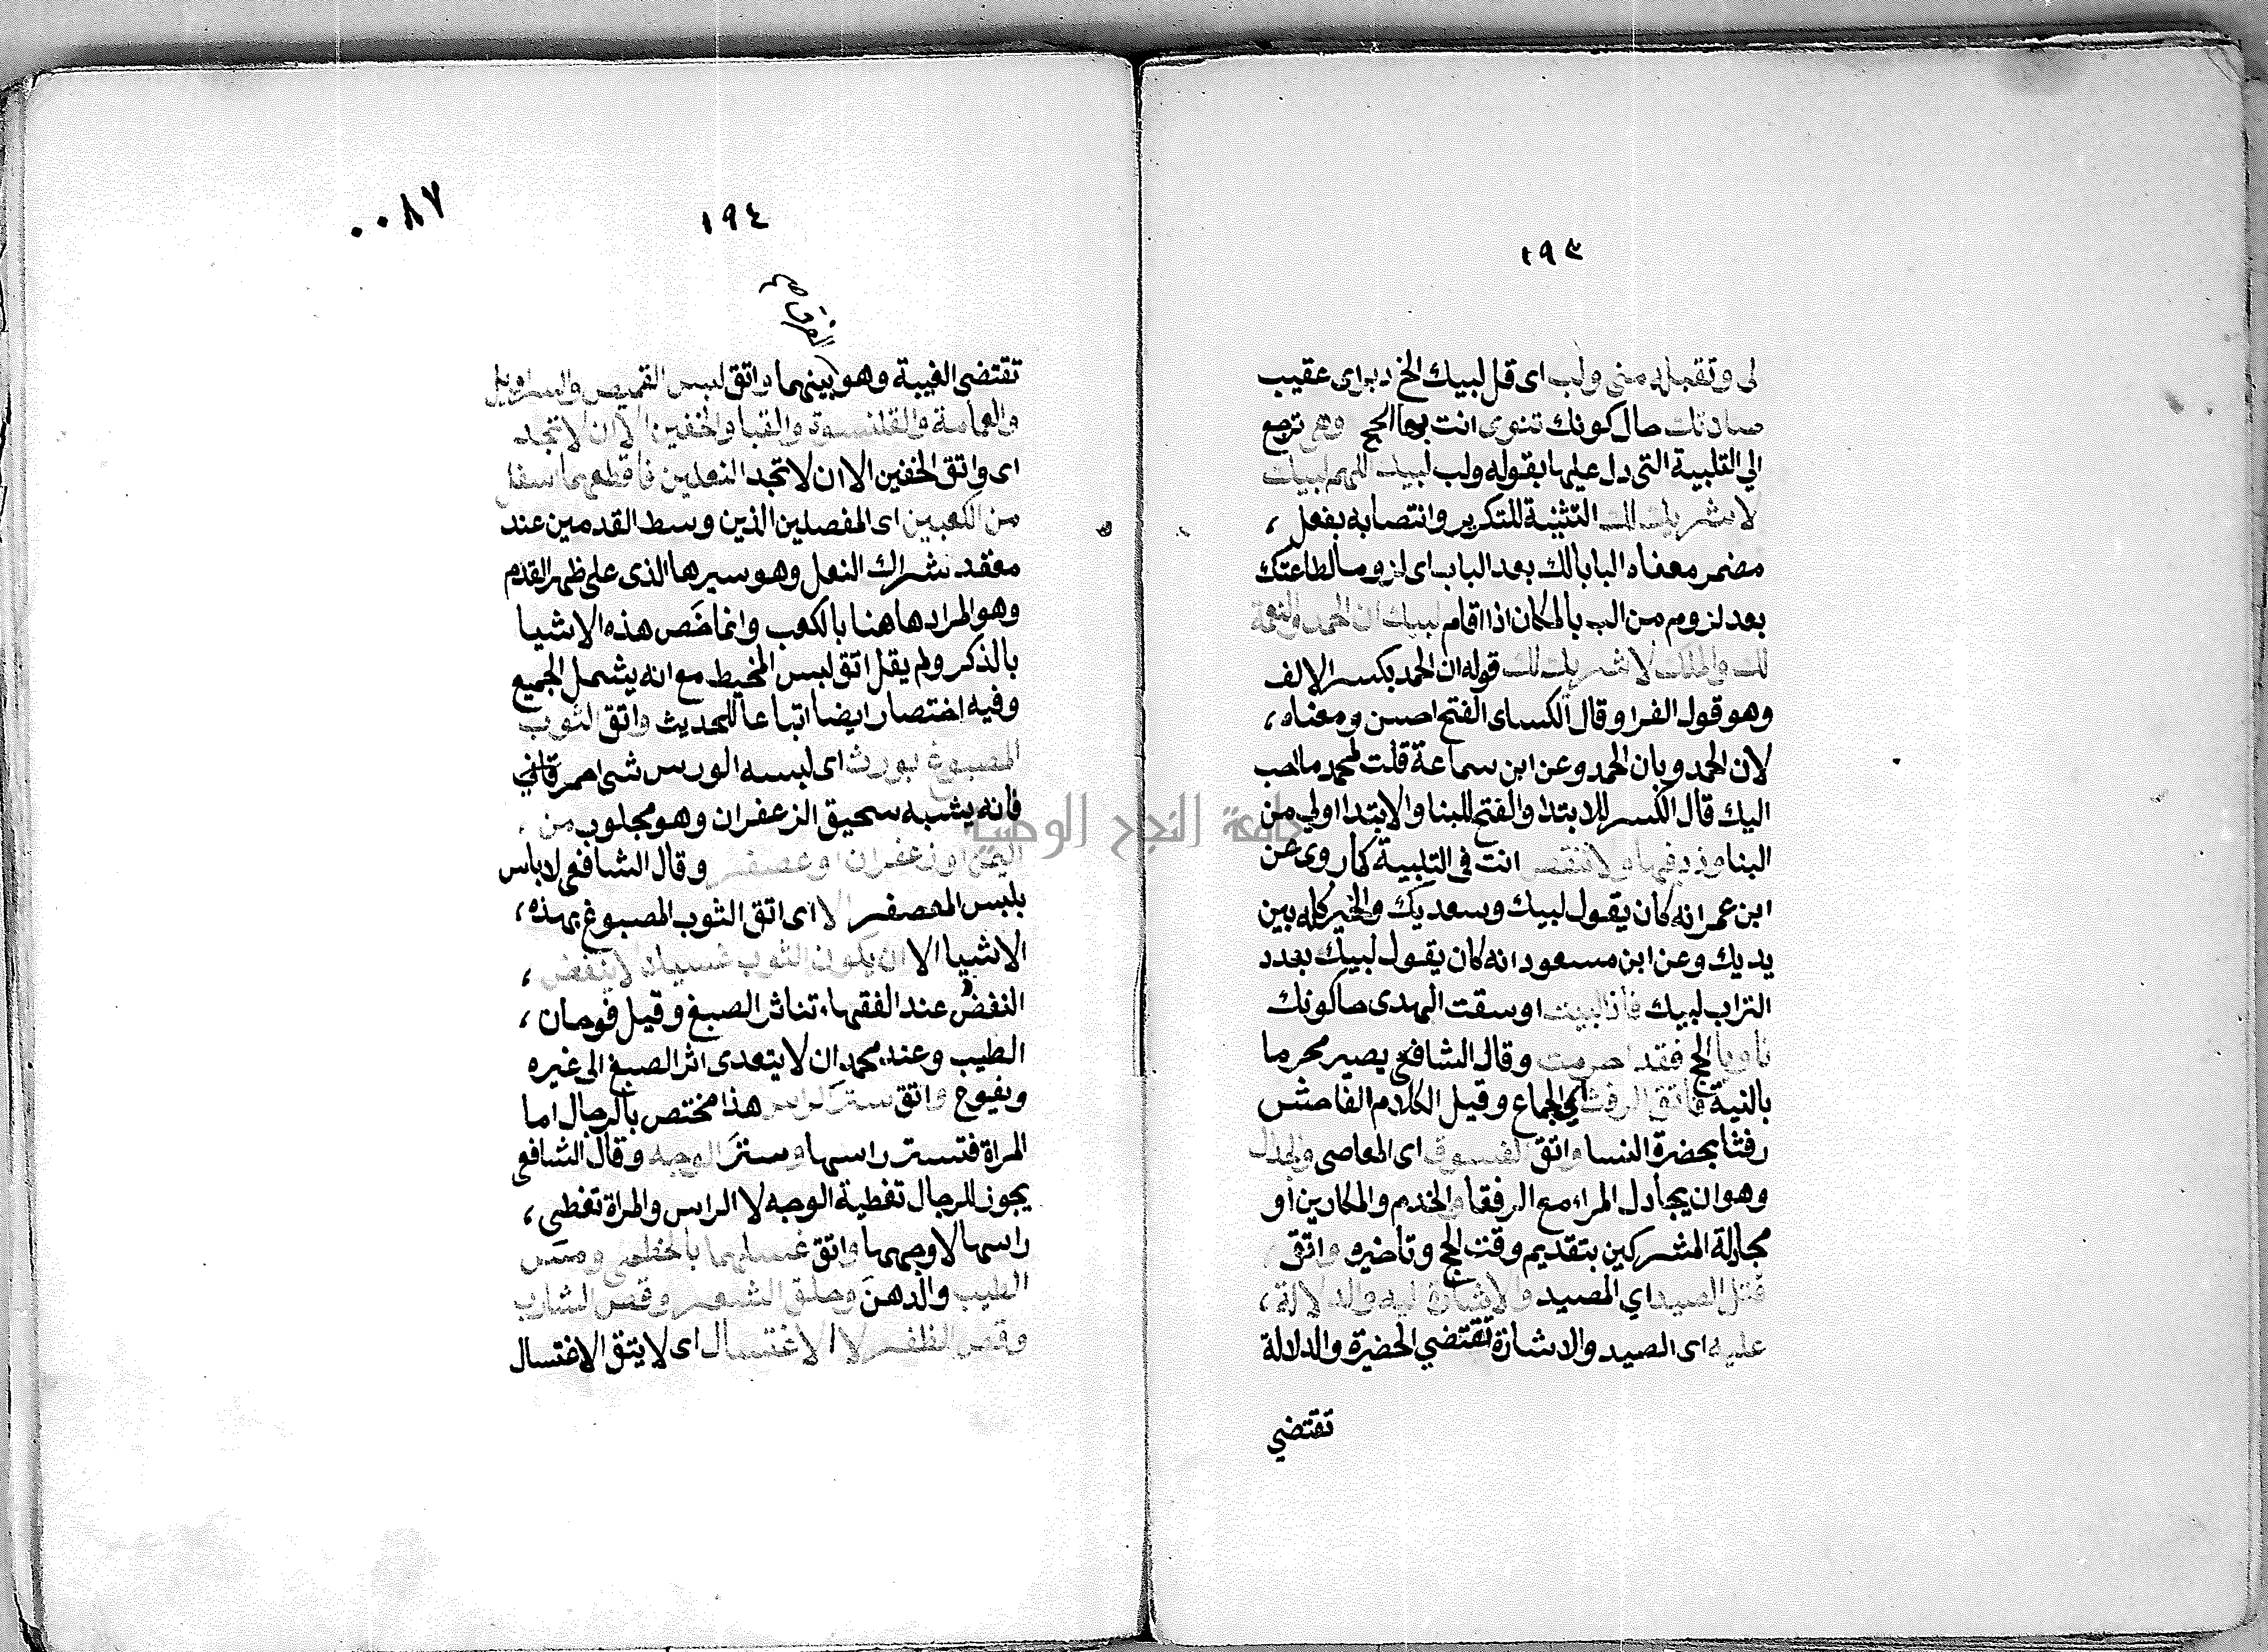 ١٩٣
لى وتقبله منى ولب اى قل لبيك الخ دبر اى عقيب
صلاتك حال كونك تنوى انت بها الحج وهى ترجع
الى التلبية التى دل عليها بقوله ولب لبيك اللهم لبيك
لا شريك لك التثنية للتكرير وانتصابه بفعل ،
مضمر معناه البابالك بعد الباب اى لزوما لطاعتك
بعد لزوم من الب بالمكان اذا اقام لبيك ان الحمد والنعمة
لك والملك لا شريك لك قوله ان الحمد بكسر الالف
وهو قول الفرا وقال الكساى الفتح احسن ومعناه ،
لان الحمد وبان الحمد وعن ابن سماعة قلت لمحمد ما احب
اليك قال الكسر للابتدا والفتح للبنا والابتدا اولى من
البنا وزد فيها ولا تنقص انت فى التلبية كما روى عن
ابن عمر انه كان يقول لبيك وسعديك والخير كله بين
يديك وعن ابن مسعود انه كان يقول لبيك بعدد
التراب لبيك فاذا لبيت اوسقت الهدى حال كونك
ناويا الحج فقد احرمت وقال الشافعى يصير محرما
بالنية فاتق الرفث اى الجماع وقيل الكلام الفاحش
رفثا بحضرة النسا واتق الفسوق اى المعاصى والجدال
وهو ان يجادل المراء مع الرفقا والخدم والمكارين او
مجادلة المشركين بتقديم وقت الحج وتاخيره واتق ،
قتل الصيد اي المصيد والاشارة اليه والدلالة ،
عليه اى الصيد والاشارة تقتضي الحضرة والدلالة
تقتضي
٠٠٨٧
١٩٤
الفرق صح
تقتضى الغيبة وهو بينهما واتق لبس القميص والسراويل
والعمامة والقلنسوة والقبا والخفين الا ان لا تجد
اى واتق الخفين الا ان لا تجد النعلين فاقطعهما اسفل
من الكعبين اى المفصلين الذين وسط القدمين عند
معقد شراك النعل وهو سيرها الذى على ظهر القدم
وهو المراد هاهنا بالكعب وانما خص هذه الاشيا
بالذكر ولم يقل اتق لبس المخيط مع انه يشمل الجميع
وفيه اختصار ايضا اتباعا للحديث واتق الثوب
المصبوغ بورث اى لبسه الورس شى احمر قانى
فانه يشبه سحيق الزعفران وهو مجلوب من ،
اليمن او زعفران او عصفر وقال الشافعى لا باس
بلبس المعصفر لا اى اتق الثوب المصبوغ بهذه ،
الاشيا الا ان يكون الثوب غسيلا لا ينفض ،
النفض عند الفقهاء تناثر الصبغ وقيل فوحان ،
الطيب وعند محمد ان لا يتعدى اثر الصبغ الى غيره
ويفوح واتق ستر الراس هذا مختص بالرجال اما
المراة فتستر راسها وستر الوجه وقال الشافعى
يجوز للرجال تغطية الوجه لا الراس والمراة تغطى ،
راسها لا وجهها واتق غسلهما بالخطمى ومس
الطيب والدهن وحلق الشعر وقص الشارب
وقص الظفر لا الاغتسال اى لا يتق الاغتسال
جامعة النجاح الوطنية